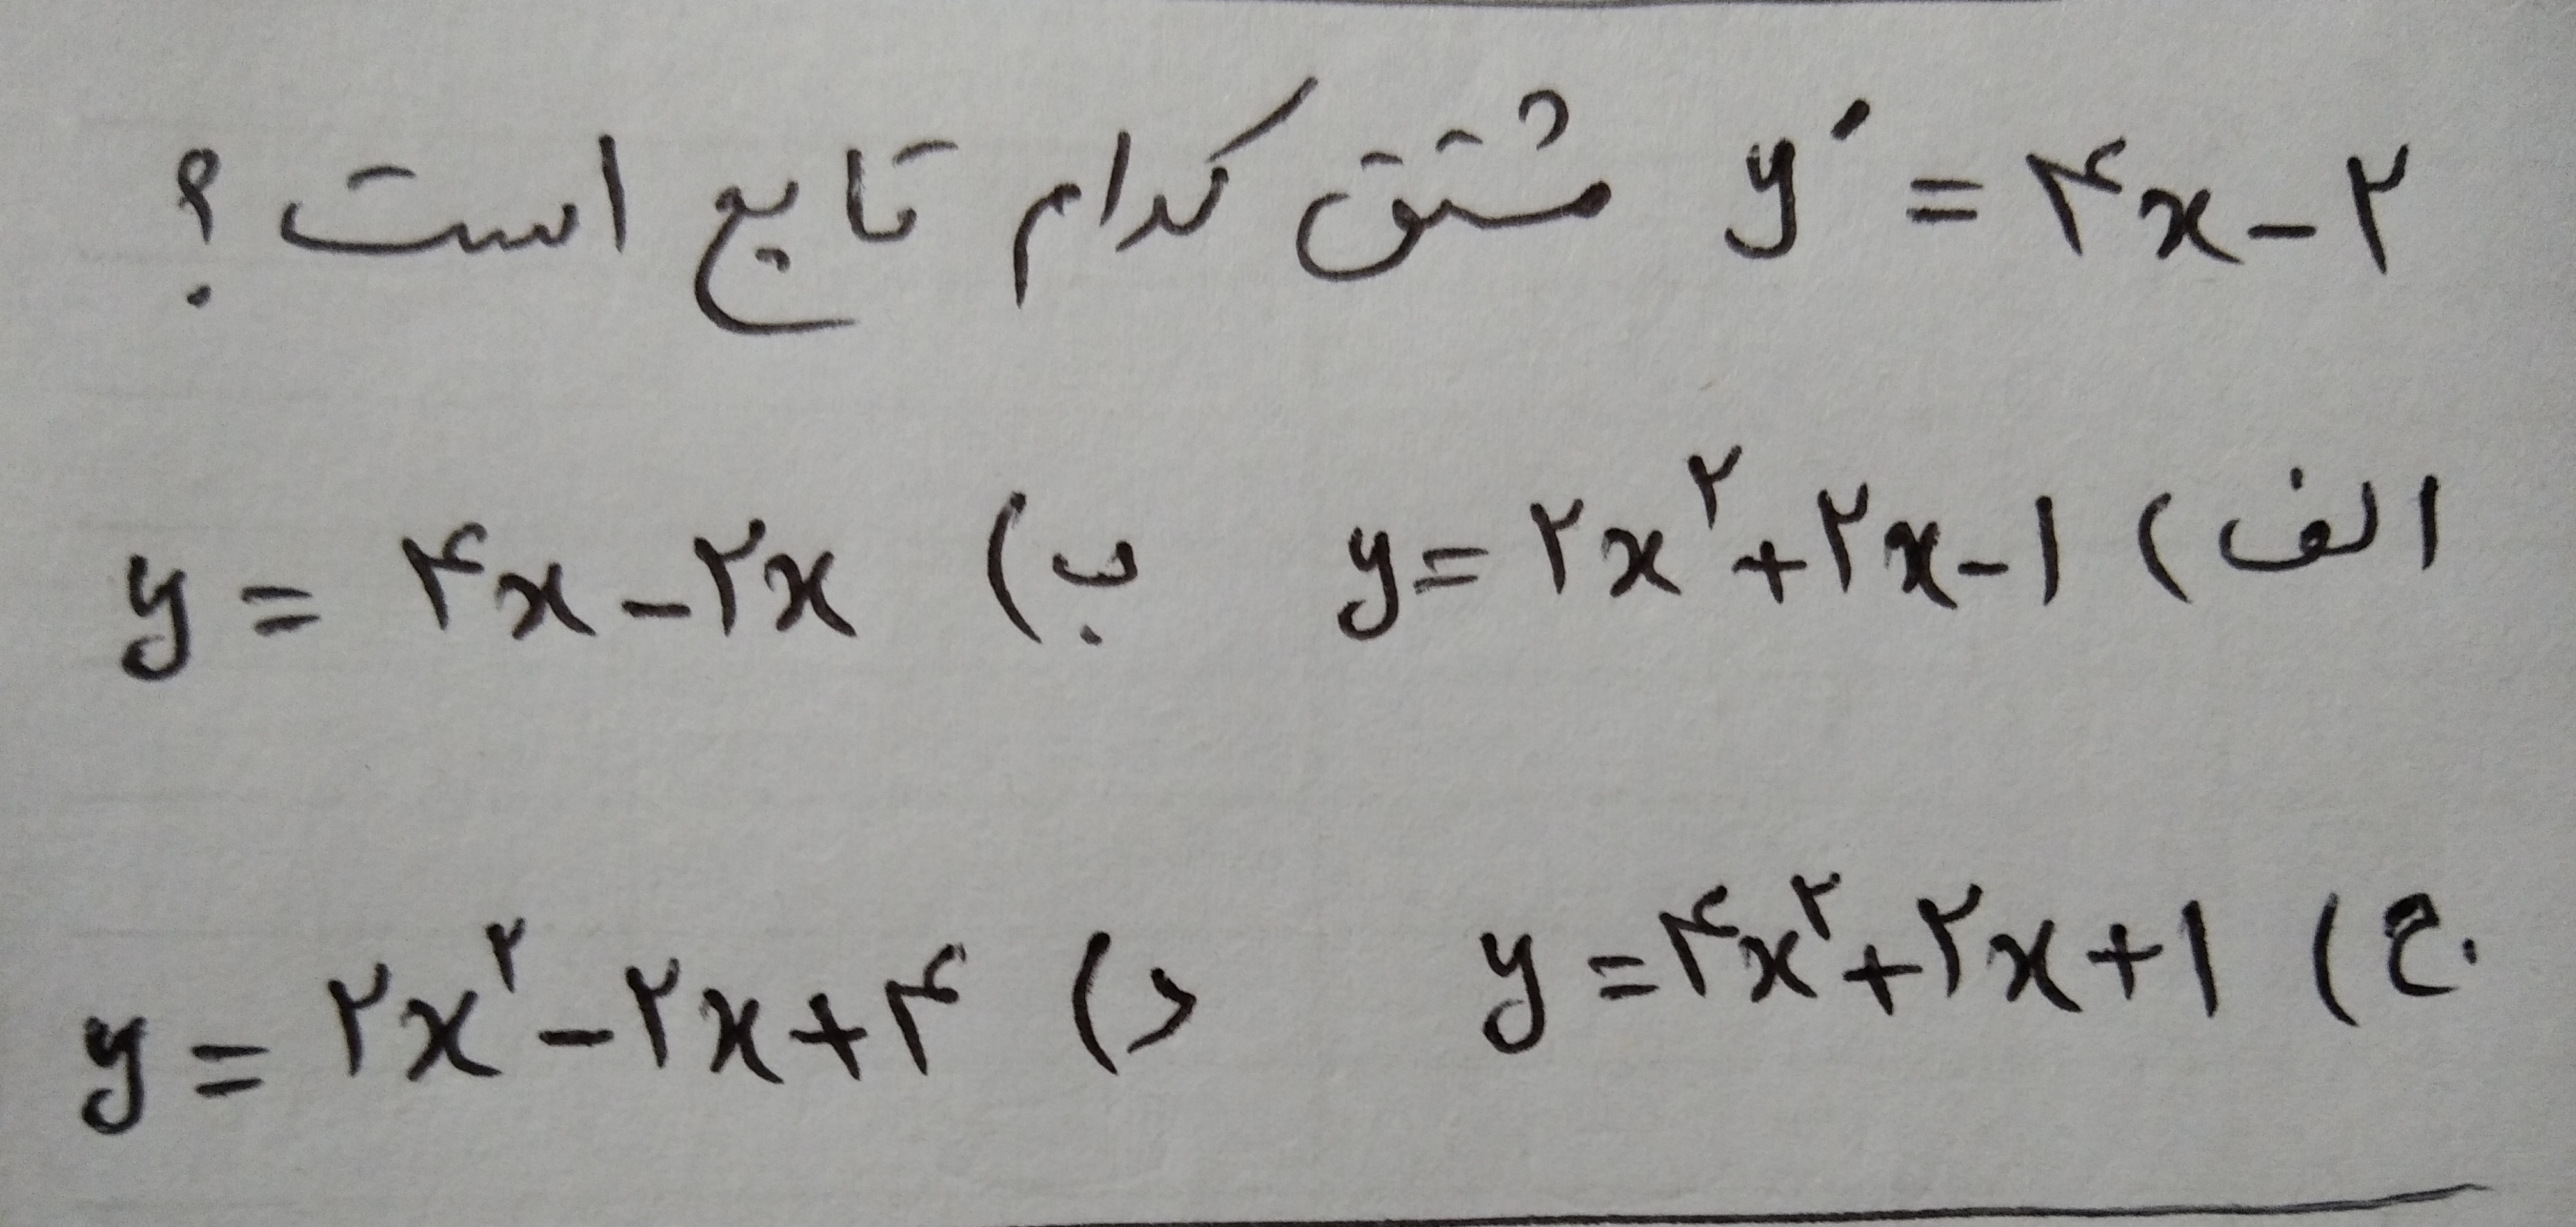 y′ = ۴x − ۲ مشتق کدام تابع است ؟
الف) y = ۲x^۲ + ۲x − ۱ ب) y = ۴x − ۲x
ج) y = ۴x^۲ + ۲x + ۱ د) y = ۲x^۲ − ۲x + ۴